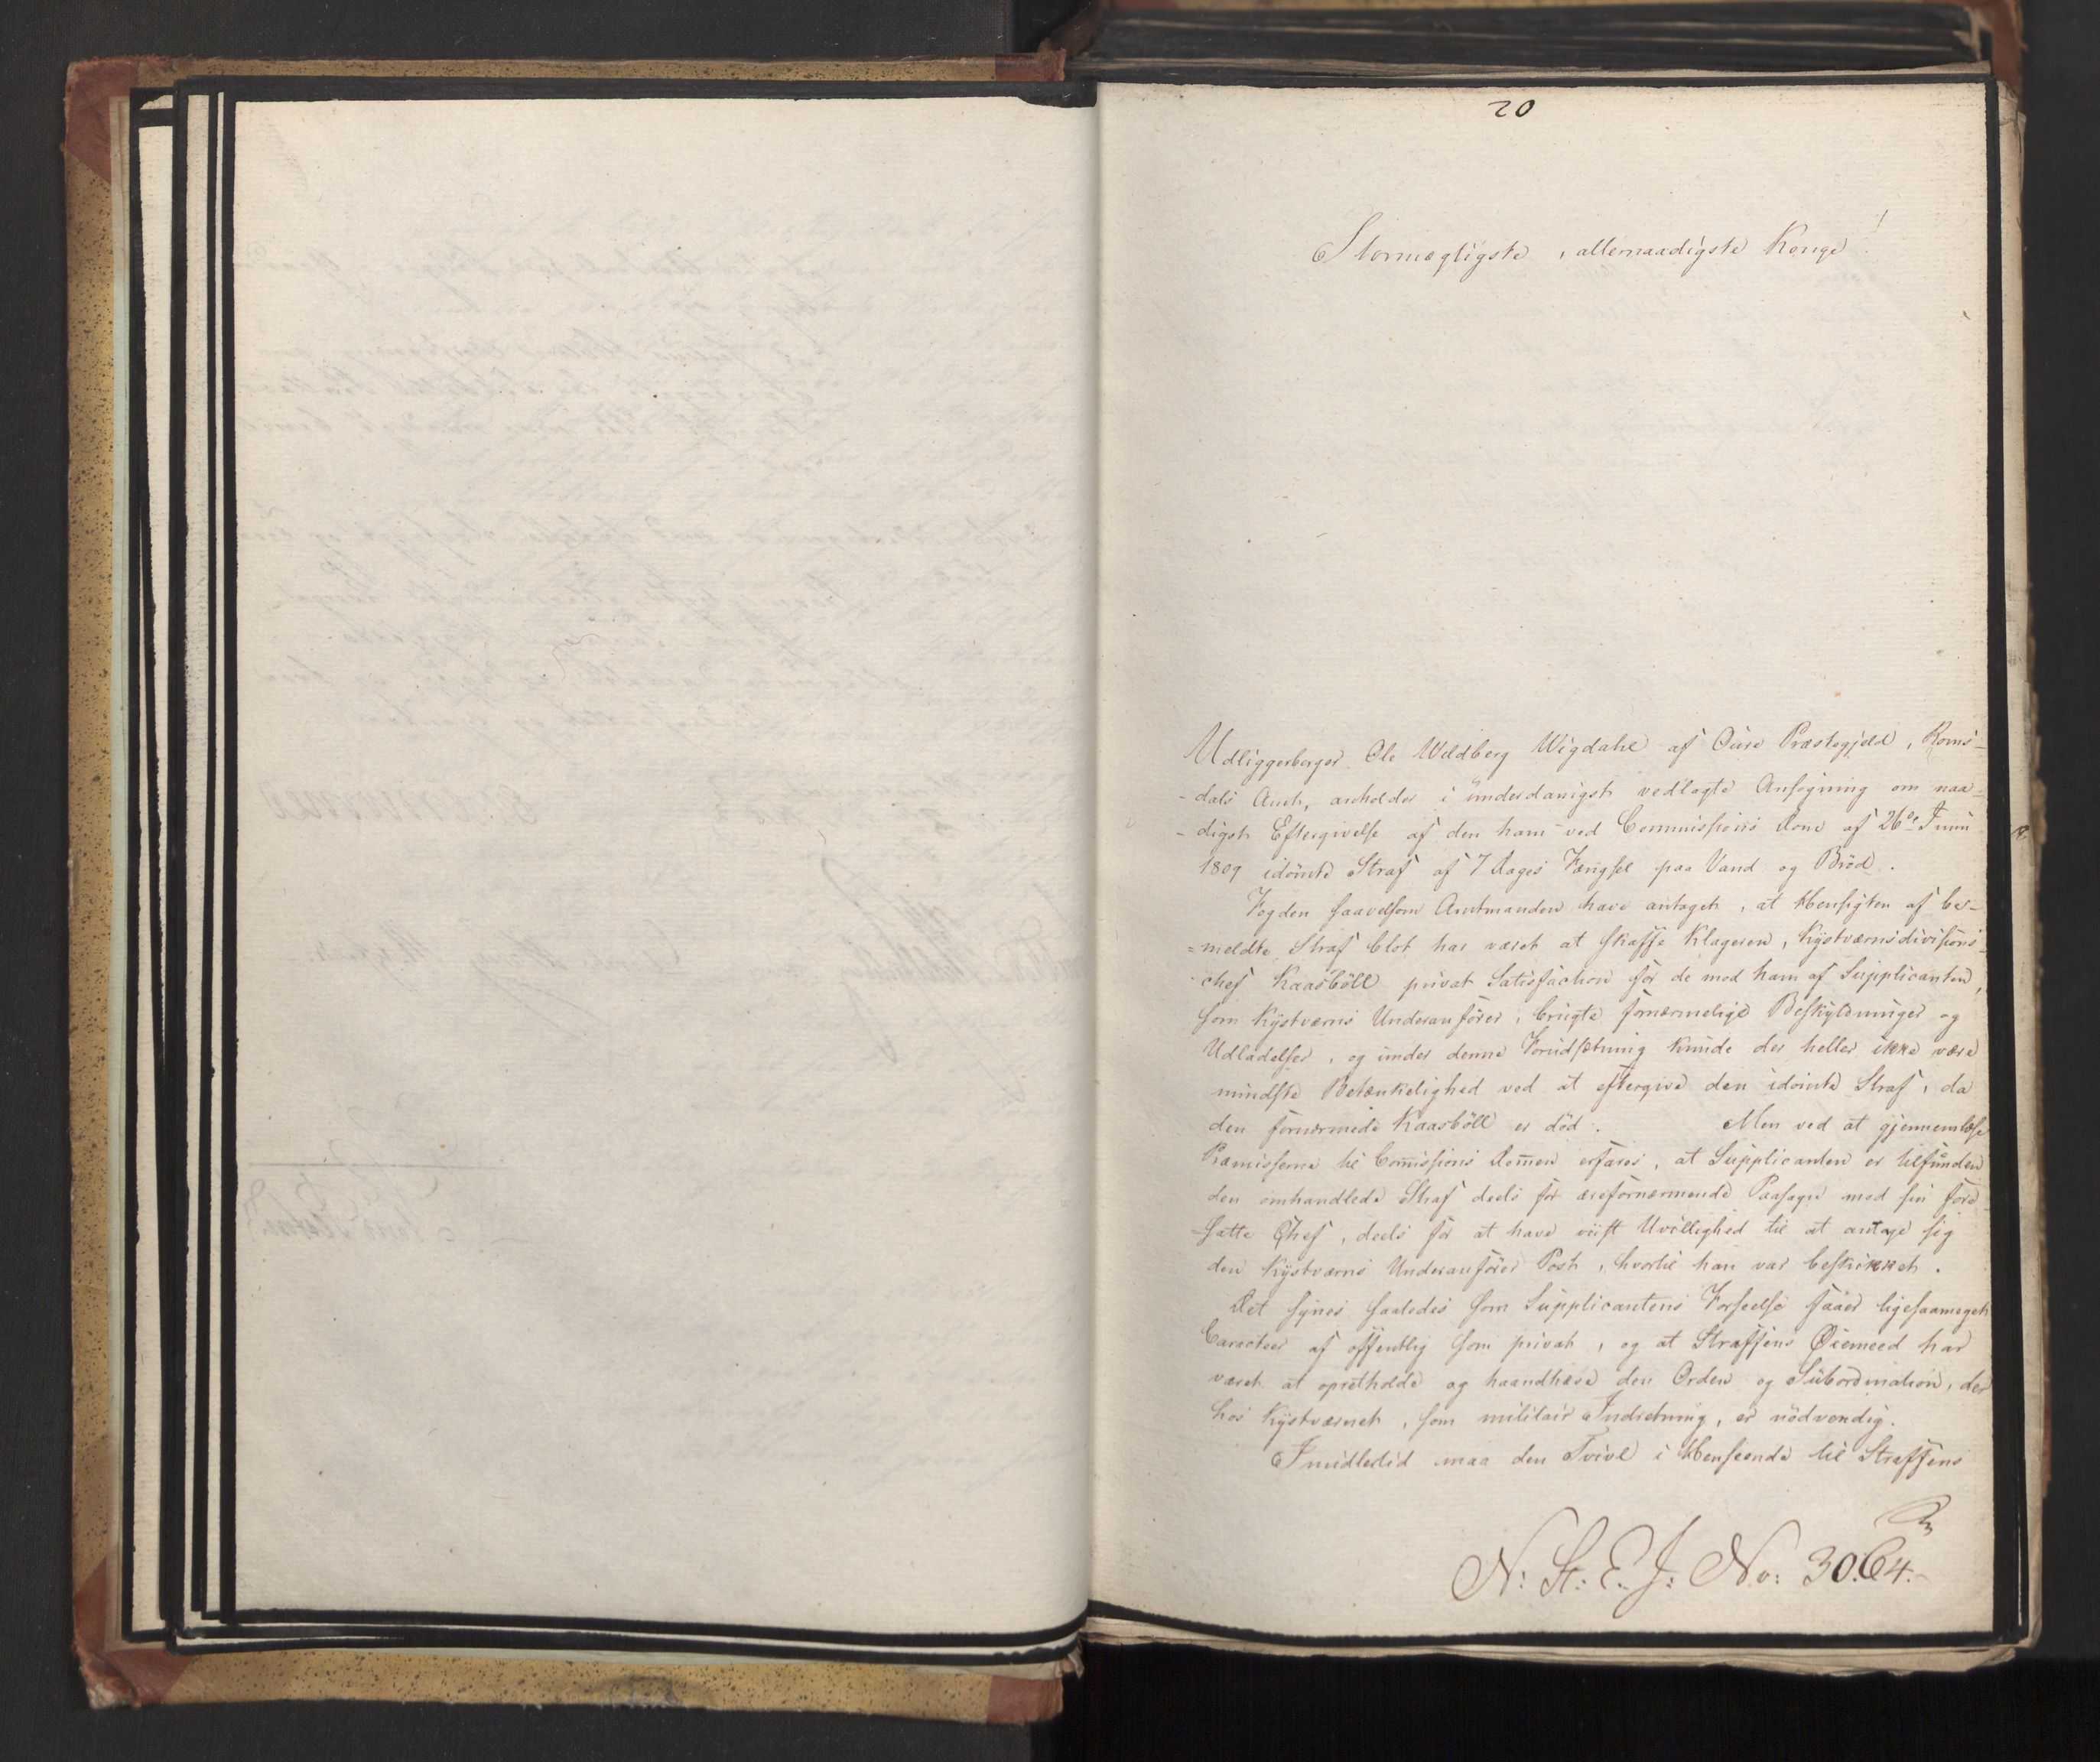 20
Stormægtigste, allernaadigste Konge!
Udliggerborger Ole Weldberg Wigdahl af Oure Præstegjeld, Roms-
-dals Amt, anholder i underdanigst vedlagte Ansøgning om naa-
-digst Eftergivelse af den ham ved Commissions Dom af 26de Juni
1809 idömte Straf af 7 Dages Fængsel paa Vand og Bröd.
Fogden saavelsom Amtmanden have antaget, at Hensigten af be-
=meldte Straf blot har været at skaffe Klageren, Kystværnsdivisions-
-chef Kaasböll privat Satisfaction for de mod ham af Supplicanten,
som Kystværns Underanförer, brugte fornærmelige Beskyldninger og
Udladelser, og under denne Forudsætning kunde der heller ikke være
mindste Betænkelighed ved at eftergive den idömte Straf, da
den fornærmede Kaasböll er död. Men ved at gjennemlæse
Præmisserne til Com̄issions Dom̄en erfares, at Supplicanten er tilfunden
den omhandlede Straf deels for ærefornærmende Paasagn mod sin fore-
-satte Chef, deels for at have viist Uvillighed til at antage sig
den Kystværns Underanförer Post, hvortil han var beskikket.
Det synes saaledes som Supplicantens Forseelse faaer ligesaameget
Caracteer af offentlig som privat, og at Straffens Øiemeed har
været at opretholde og haandhæve den Orden og Subordination, der
hos Kystværnet, som militair Indretning, er nödvendig.
Imidlertid maa den Tvivl i Henseende til Straffens
N: St: E. J: No: 30.64.